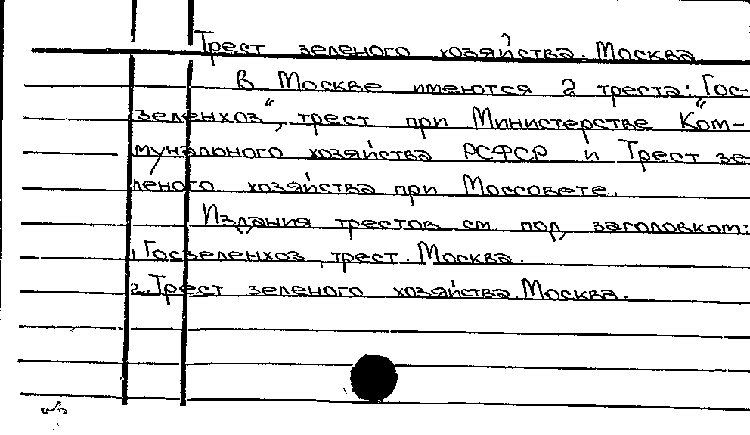 Трест зеленого хозяйства. Москва
В Москве имеются 2 треста: „Гос-
зеленхоз", трест при Министерстве Ком-
мунального хозяйства РСФСР и Трест зе-
леного хозяйства при Моссовете.
Издания трестов см. под заголовком:
1. Госзеленхоз, трест. Москва.
2. Трест зеленого хозяйства. Москва.